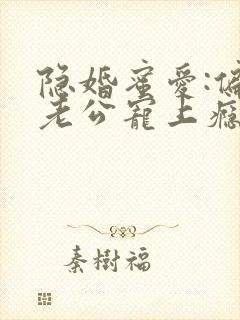 隐婚蜜爱:偏
老公宠上瘾
秦樹福